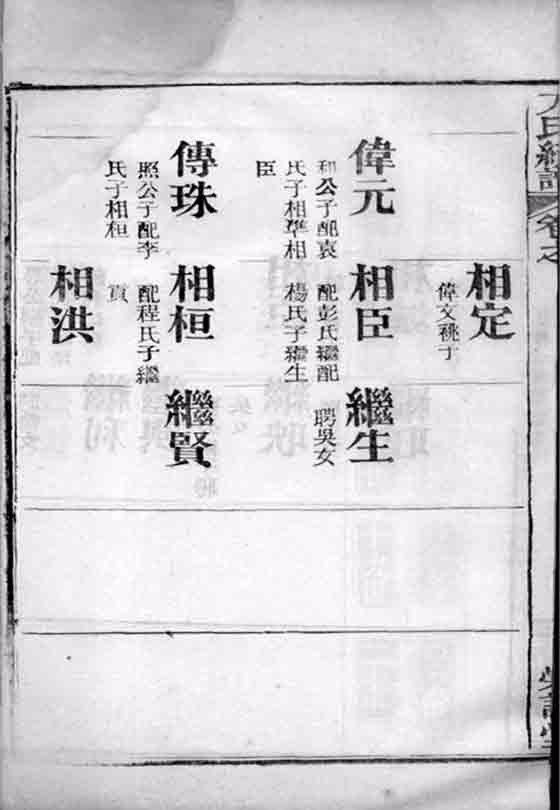 相定
偉文祧子
偉元
和公子配袁
氏子相準相
臣
相臣
配彭氏繼配
楊氏子繼生
繼生
聘吳女
傳珠
照公子配李
氏子相桓
相桓
配程氏子繼
繼賢
相洪